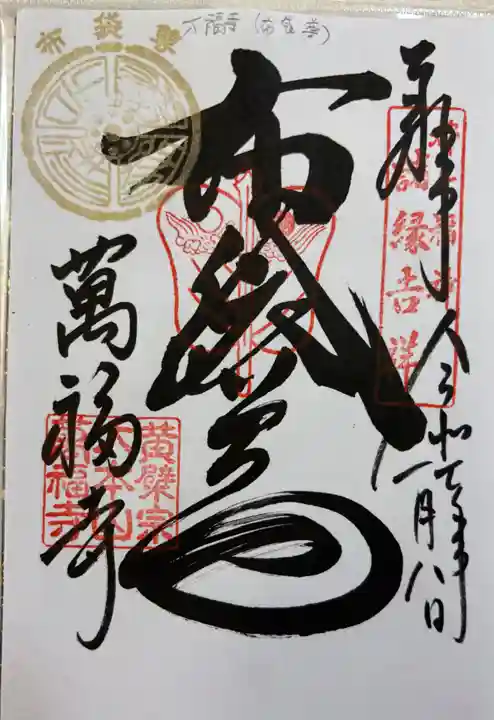 万福寺(布袋尊)
布袋尊
奉拝
令和七年一月八日
諸縁吉祥
布袋尊
萬福寺
黄檗宗
大本山
萬福寺